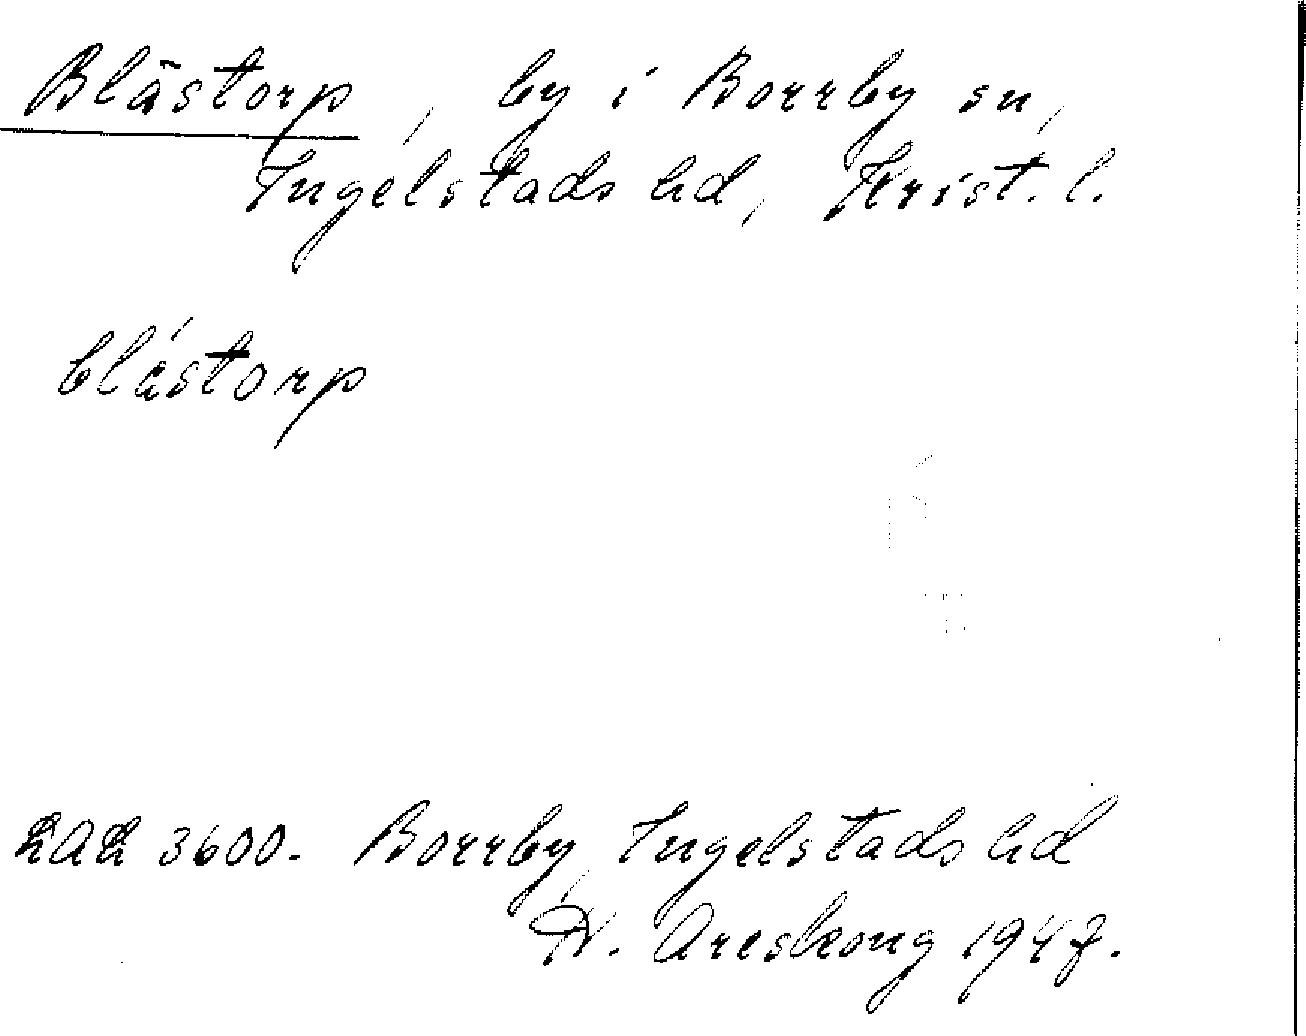 Blästorp, by i Borrby sn,
Ingelstads hd, Krist. l.
blástorp
LAL 3600. Borrby, Ingelstads hd
N. Areskoug 1947.